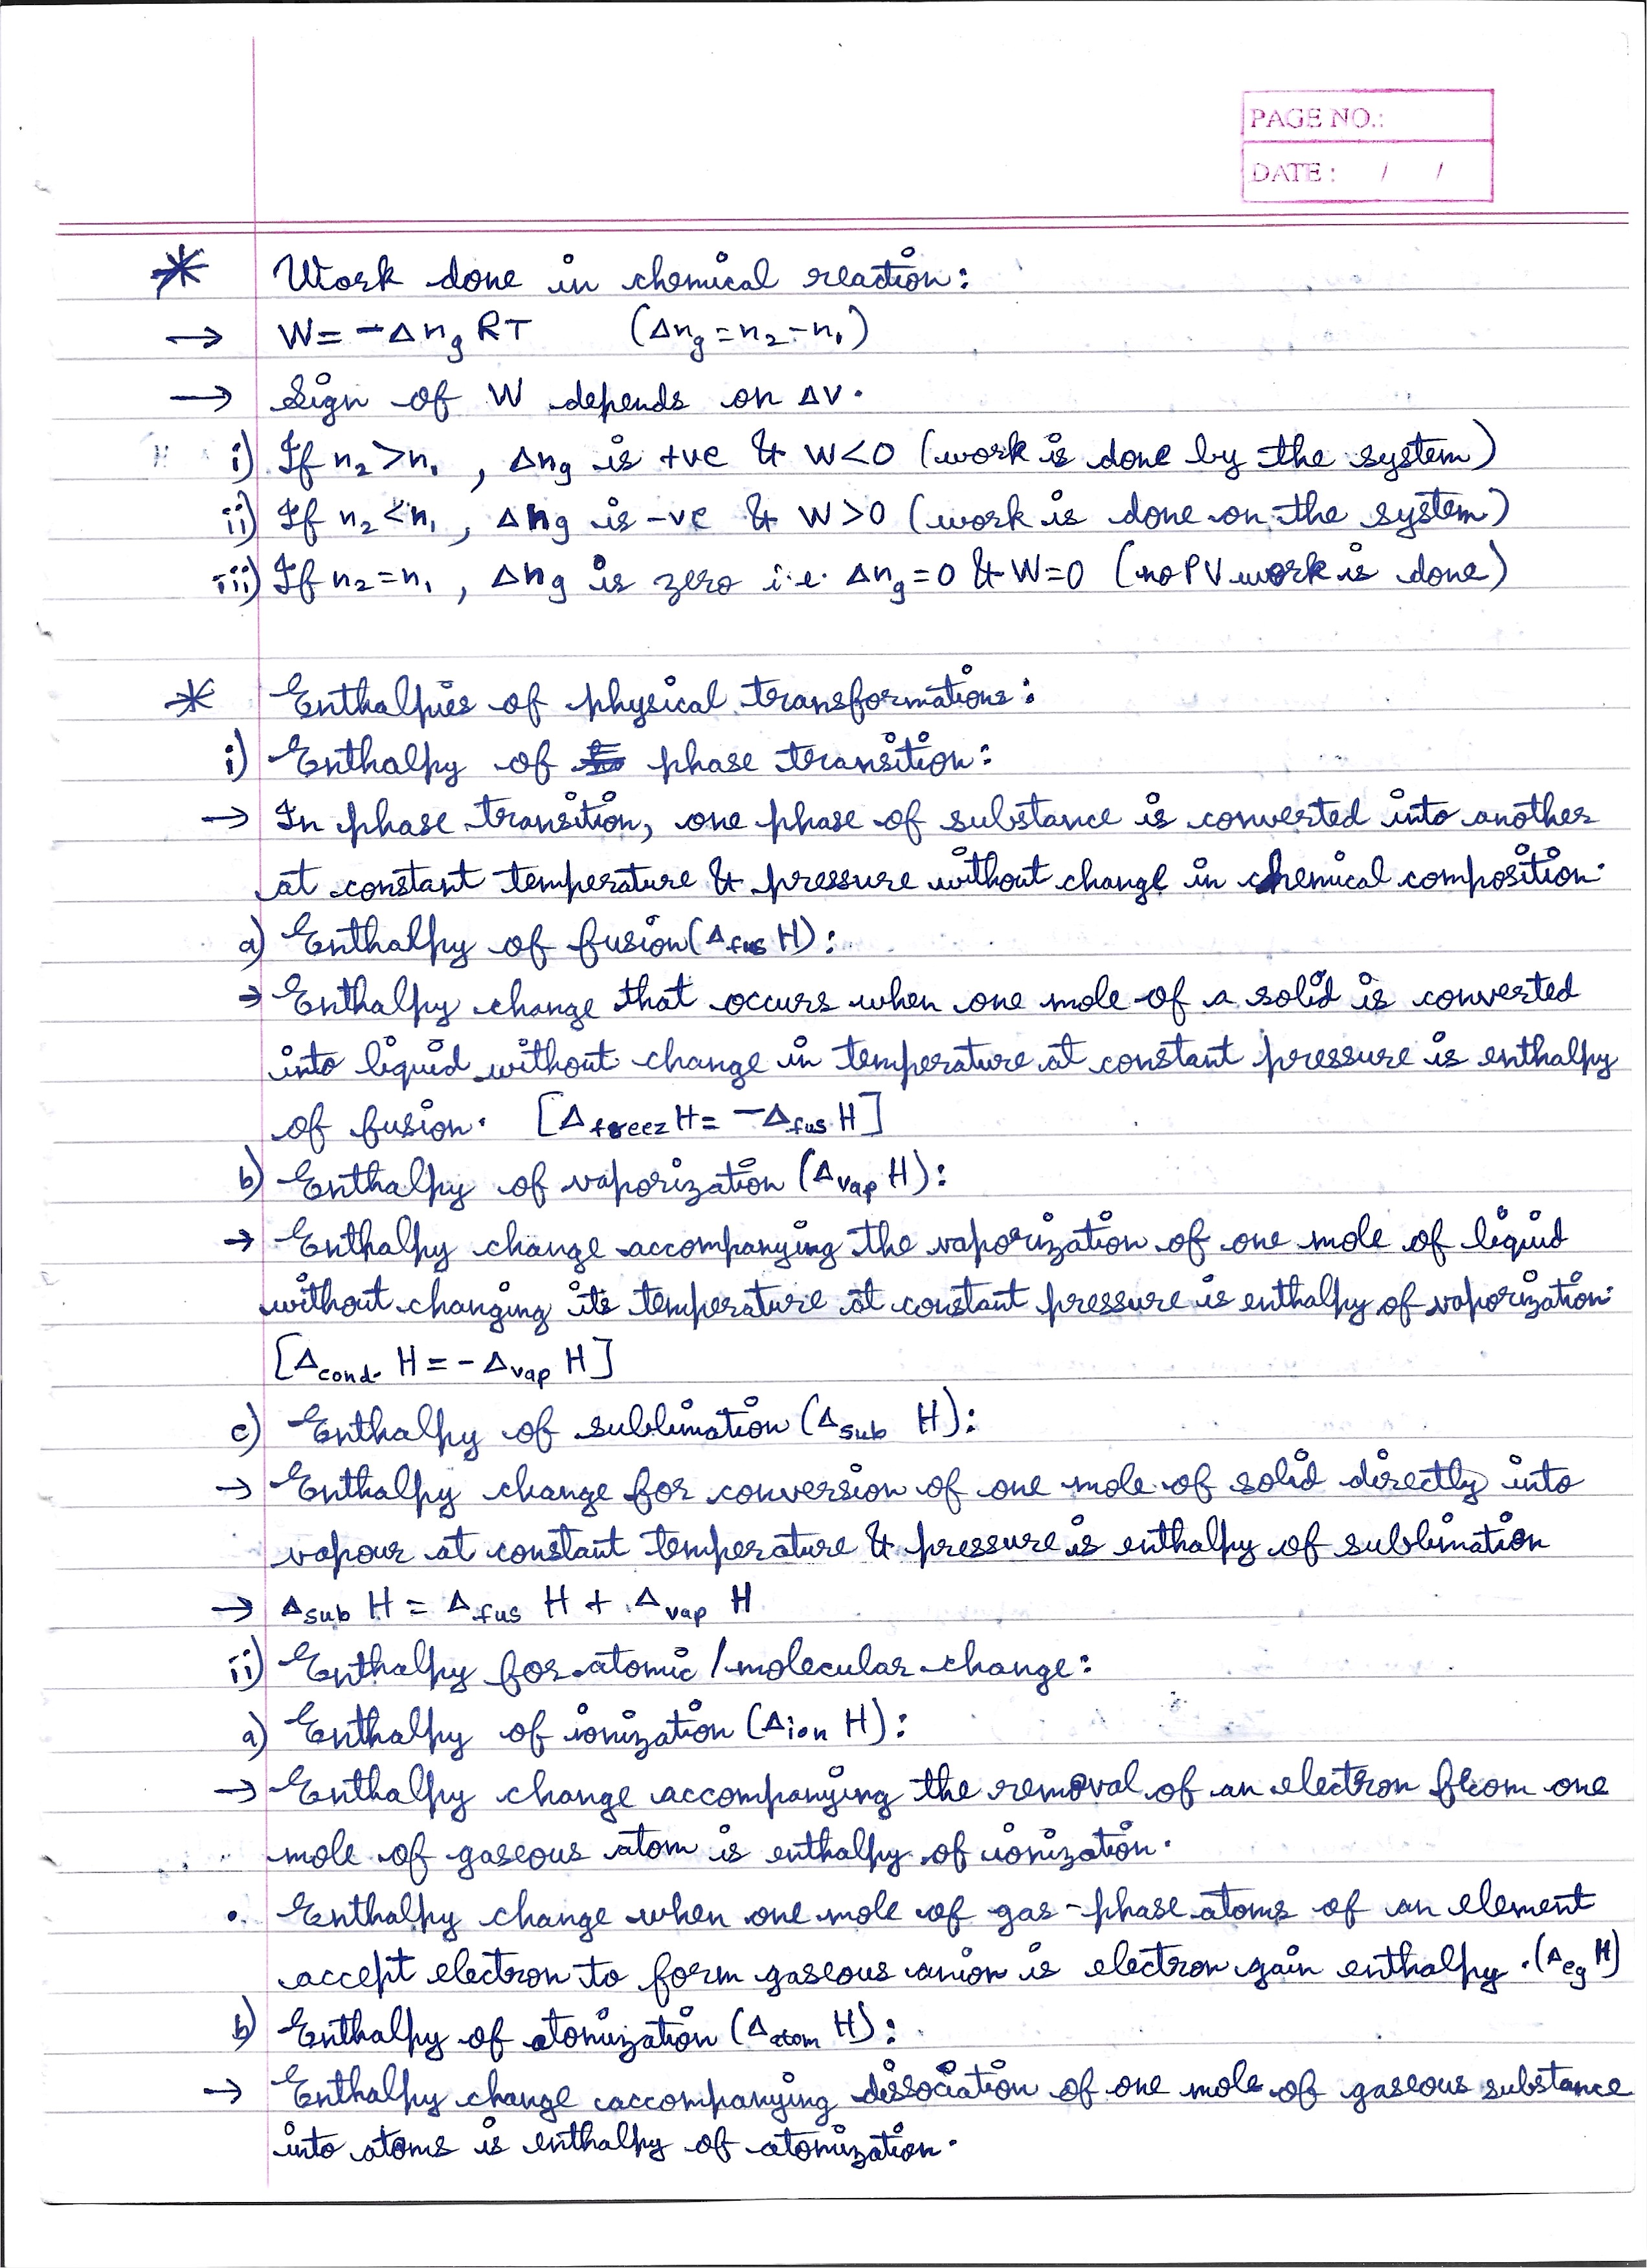 PAGE NO.:
DATE : / /
* Work done in chemical reaction:
→ W = -Δn_g RT (Δn_g = n₂ - n₁)
→ Sign of W depends on ΔV.
i) If n₂ > n₁, Δn_g is +ve & W<0 (work is done by the system)
ii) If n₂ < n₁, Δn_g is -ve & W>0 (work is done on the system)
iii) If n₂ = n₁, Δn_g is zero i.e. Δn_g = 0 & W=0 (no PV work is done)
* Enthalpies of physical transformations:
i) Enthalpy of phase transition:
→ In phase transition, one phase of substance is converted into another
at constant temperature & pressure without change in chemical composition.
a) Enthalpy of fusion (Δ_fus H):
→ Enthalpy change that occurs when one mole of a solid is converted
into liquid without change in temperature at constant pressure is enthalpy
of fusion. [Δ_freez H = -Δ_fus H]
b) Enthalpy of vaporization (Δ_vap H):
→ Enthalpy change accompanying the vaporization of one mole of liquid
without changing its temperature at constant pressure is enthalpy of vaporization.
[Δ_cond. H = -Δ_vap H]
c) Enthalpy of sublimation (Δ_sub H):
→ Enthalpy change for conversion of one mole of solid directly into
vapour at constant temperature & pressure is enthalpy of sublimation
→ Δ_sub H = Δ_fus H + Δ_vap H
ii) Enthalpy for atomic / molecular change:
a) Enthalpy of ionization (Δ_ion H):
→ Enthalpy change accompanying the removal of an electron from one
mole of gaseous atom is enthalpy of ionization.
• Enthalpy change when one mole of gas-phase atoms of an element
accept electron to form gaseous anion is electron gain enthalpy. (Δ_eg H)
b) Enthalpy of atomization (Δ_atom H):
→ Enthalpy change accompanying dissociation of one mole of gaseous substance
into atoms is enthalpy of atomization.